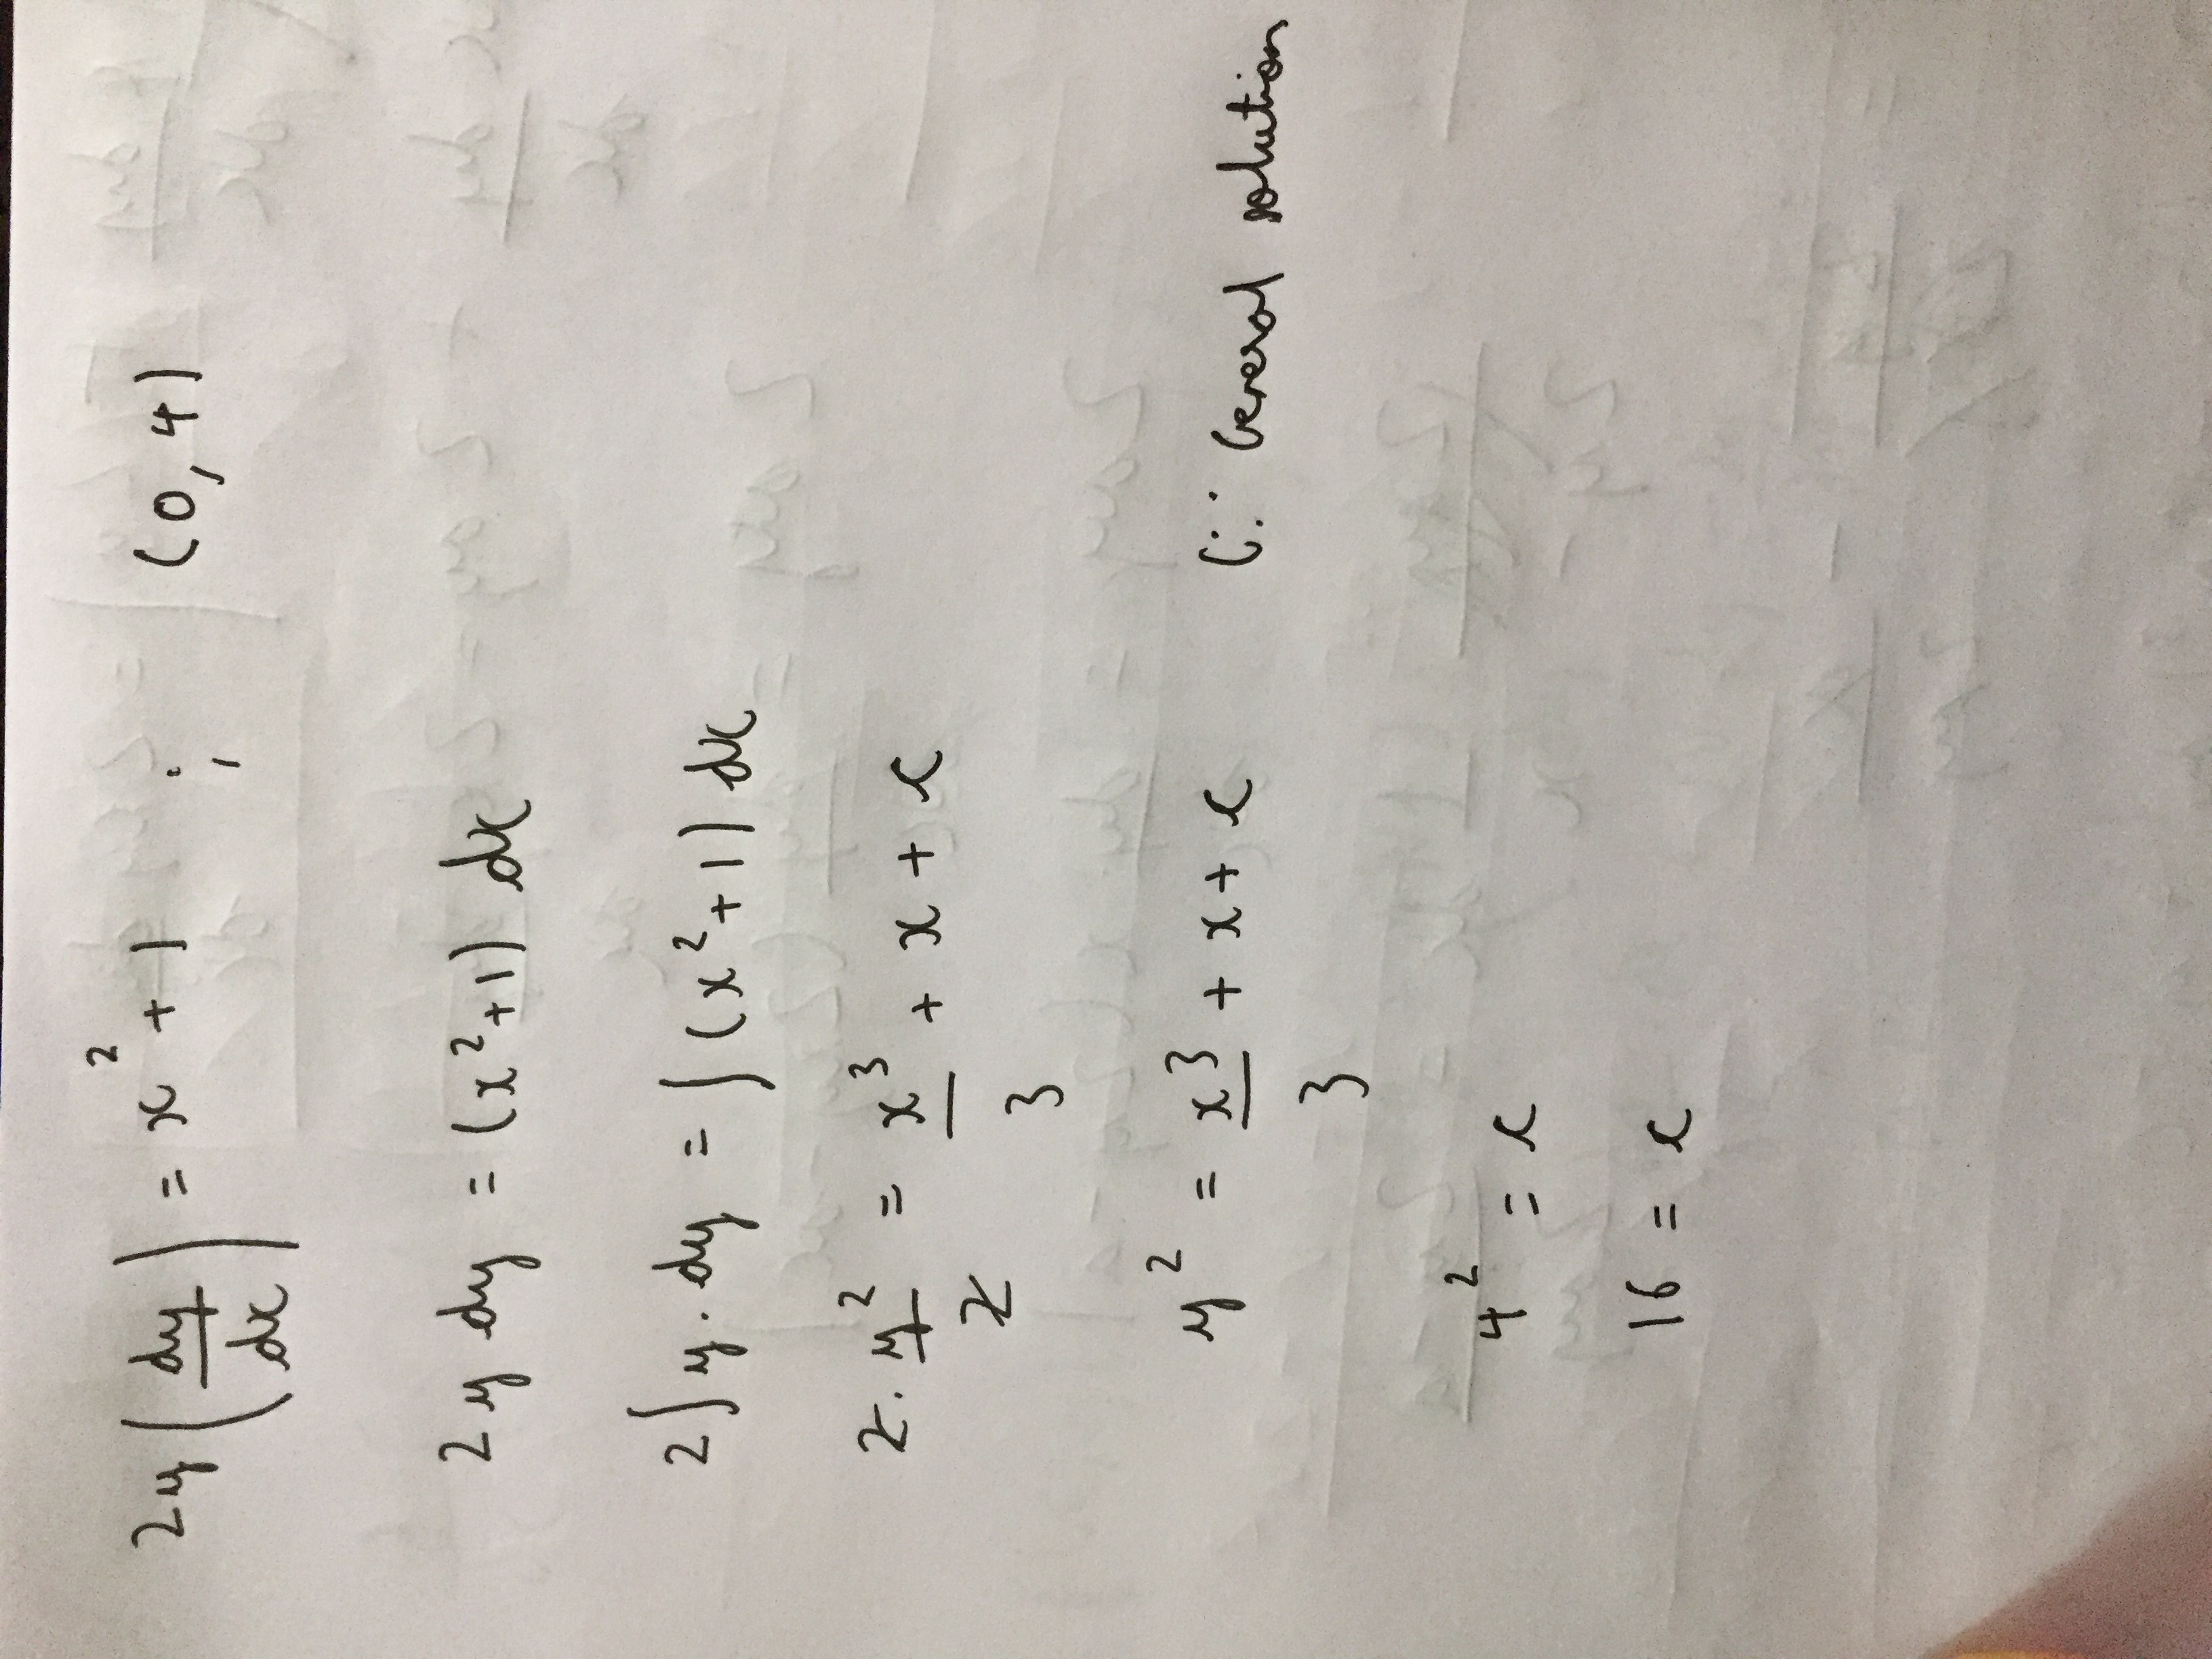 2y (dy/dx) = x² + 1 ; (0, 4)
2y dy = (x²+1) dx
2∫y. dy = ∫(x²+1) dx
2. y²/2 = x³/3 + x + c
y² = x³/3 + x + c (∵ General solution
4² = c
16 = c